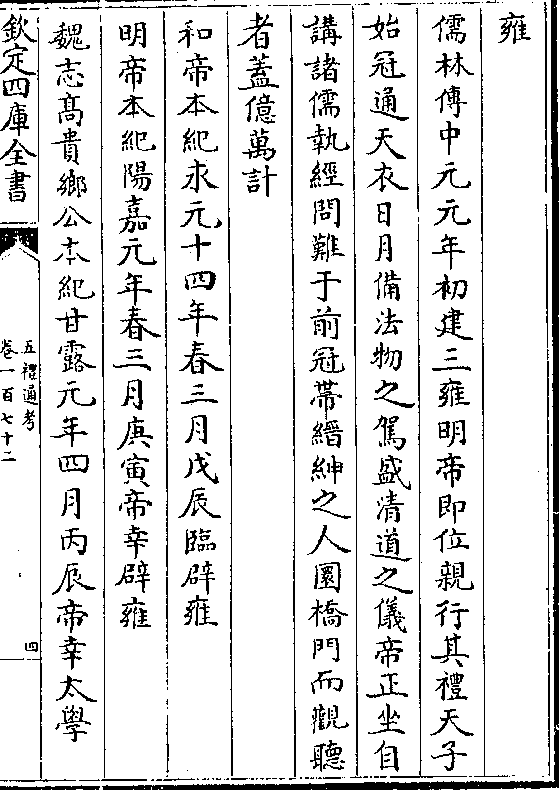 雍
儒林傳中元元年初建三雍明帝即位親行其禮天子
始冠通天衣日月備法物之駕盛清道之儀帝正坐自
講諸儒執經問難于前冠帶縉紳之人圜橋門而觀聽
者蓋億萬計
和帝本紀永元十四年春三月戊辰臨辟雍
明帝本紀陽嘉元年春三月庚寅帝幸辟雍
魏志髙貴鄉公本紀甘露元年四月丙辰帝幸太學
欽定四庫全書
五禮通考
卷一百七十二
四